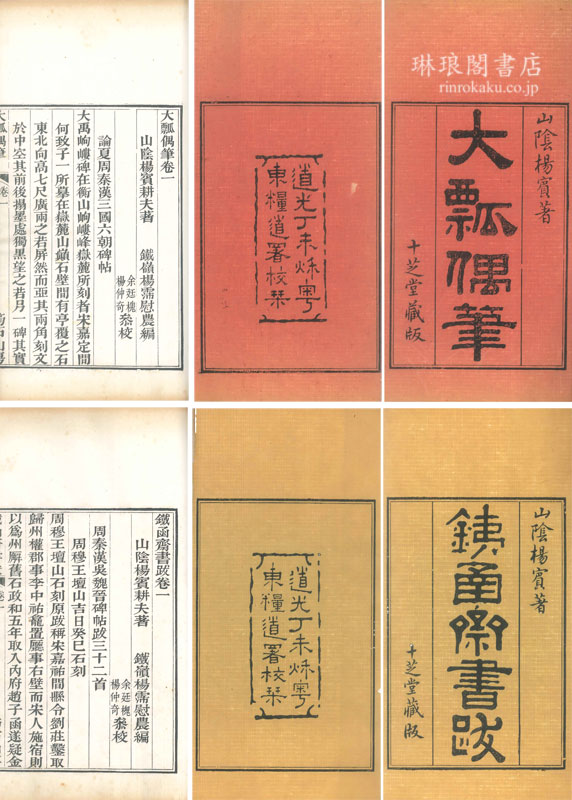 琳琅閣書店
rinrokaku.co.jp
山陰楊賓著
大瓢偶筆
十芝堂藏版
道光丁未秌粤
東糧道署校栞
大瓢偶筆卷一
山陰楊賓耕夫著
鐵嶺楊霈慰農編
余廷槐
楊仲奇
叅校
論夏周秦漢三國六朝碑帖
大禹岣嶁碑在衡山岣嶁峰嶽麓所刻者宋嘉定間
何致子一所摹在嶽麓山巔石壁間有亭覆之石
東北向高七尺廣兩之若屏然而亞其兩角刻文
於中空其前後搨墨處獨黒望之若月一碑其實
大瓢偶筆
卷一
山陰楊賓著
鐵函齋書跋
十芝堂藏版
道光丁未秌粤
東糧道署校栞
鐵函齋書跋卷一
山陰楊賓耕夫著
鐵嶺楊霈慰農編
余廷槐
楊仲奇
叅校
周秦漢吳魏晉碑帖跋三十二首
周穆王壇山吉日癸巳石刻
周穆王壇山石刻原跋稱宋嘉祐間縣令劉莊鑿取
歸州權郡事李中祐龕置廳事右壁而宋人施宿則
以爲州廨舊石政和五年取入内府趙子函遂疑金